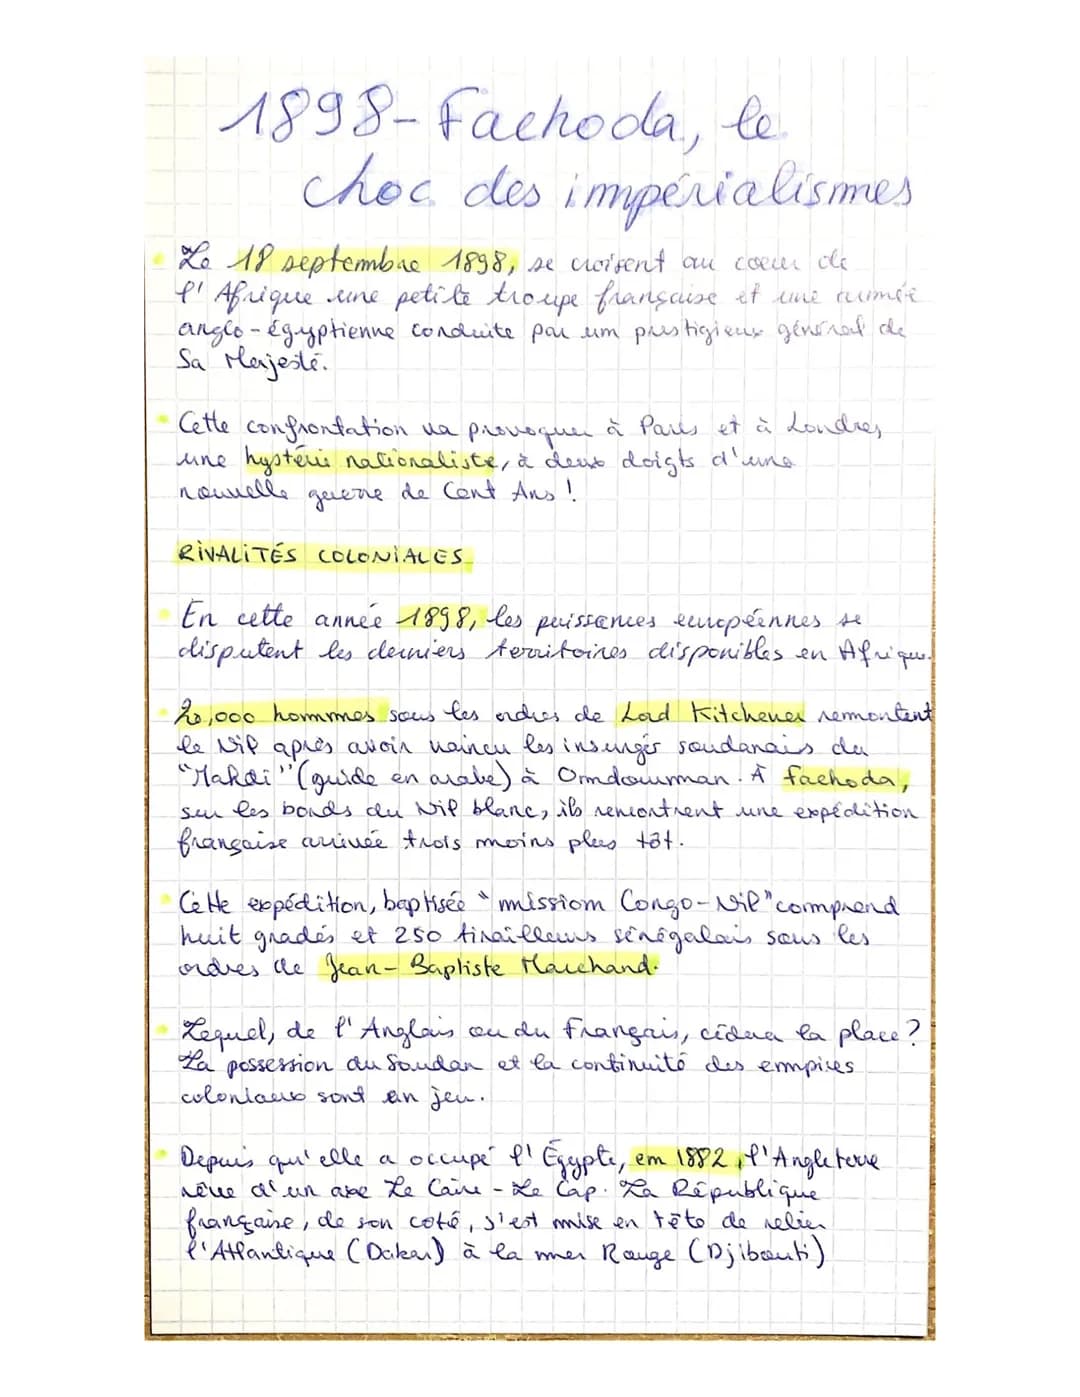 1898 - Fachoda, le
choc des impérialismes
Le 18 septembre 1898, se croisent au coeur de
l'Afrique une petite troupe française et une armée
anglo-égyptienne conduite par un prestigieux général de
Sa Majesté.
Cette confrontation va provoquer à Paris et à Londres,
une hystérie nationaliste, à deux doigts d'une
nouvelle guerre de Cent Ans !
RIVALITÉS COLONIALES
En cette année 1898, les puissances européennes se
disputent les derniers territoires disponibles en Afrique.
20,000 hommes sous les ordres de Lord Kitchener remontent
le Nil après avoir vaincu les insurgés soudanais du
"Mahdi" (guide en arabe) à Omdourman. À Fachoda,
sur les bords du Nil blanc, ils rencontrent une expédition
française arrivée trois moins plus tôt.
Cette expédition, baptisée "mission Congo-Nil" comprend
huit gradés et 250 tirailleurs sénégalais sous les
ordres de Jean-Baptiste Marchand.
Lequel, de l'Anglais ou du Français, cédera la place ?
La possession du Soudan et la continuité des empires
coloniaux sont en jeu.
Depuis qu'elle a occupé l'Égypte, en 1882, l'Angleterre
rêve d'un axe Le Caire - Le Cap. La République
française, de son coté, s'est mise en tête de relier
l'Atlantique (Dakar) à la mer Rouge (Djibouti)